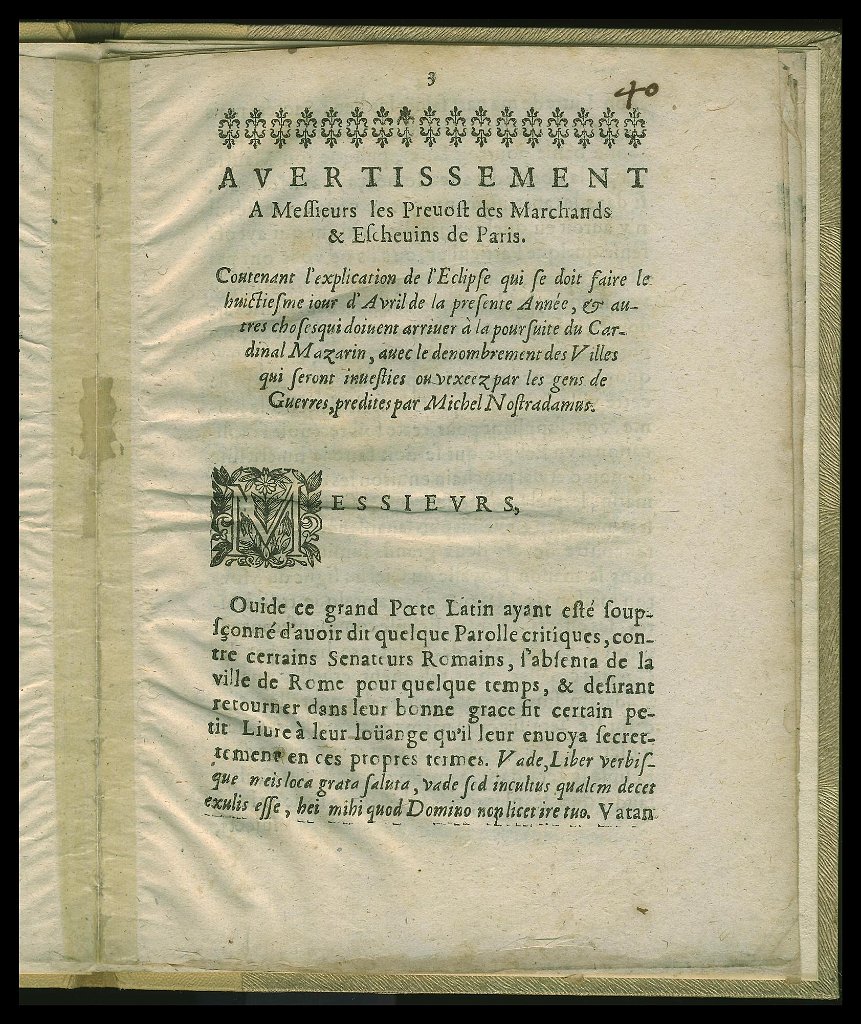 3
40
AVERTISSEMENT
A Meſſieurs les Preuoſt des Marchands
& Eſcheuins de Paris.
Contenant l'explication de l'Eclipſe qui ſe doit faire le
huictieſme iour d'Avril de la preſente Année, & au-
tres choſes qui doiuent arriuer à la pourſuite du Car-
dinal Mazarin, auec le denombrement des Villes
qui ſeront inueſties ou vexeez par les gens de
Guerres, predites par Michel Noſtradamus.
MESSIEVRS,
Ouide ce grand Pœte Latin ayant eſté ſoup-
ſçonné d'auoir dit quelque Parolle critiques, con-
tre certains Senateurs Romains, ſ'abſenta de la
ville de Rome pour quelque temps, & deſirant
retourner dans leur bonne grace fit certain pe-
tit Liure à leur loüange qu'il leur enuoya ſecret-
tement en ces propres termes. Vade Liber verbiſ-
que meis loca grata ſaluta, vade ſed incultus qualem decet
exulis eſſe, hei mihi quod Domino non licet ire tuo. Vatan